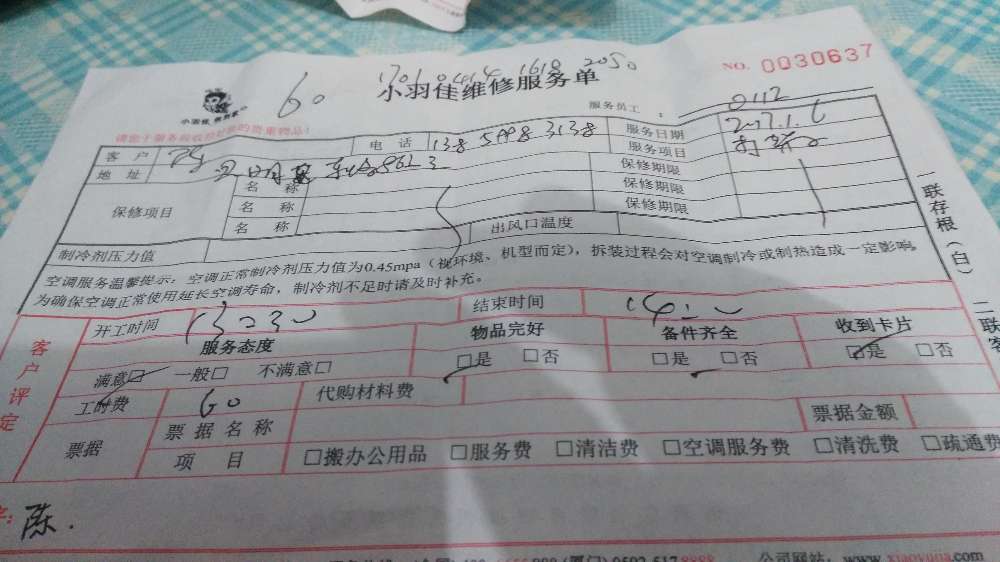 NO. 0030637
1706 0414 1618 2050
60
小羽佳维修服务单
小羽佳
请您于服务前收拾好您的贵重物品!
服务员工: 0112
客户 电话 138 5998 3138 服务日期 2017.1.6
地址 服务项目
保修项目 名称 保修期限
名称 保修期限
名称 保修期限
制冷剂压力值 出风口温度
空调服务温馨提示: 空调正常制冷剂压力值为0.45mpa(视环境、机型而定), 拆装过程会对空调制冷或制热造成一定影响,
为确保空调正常使用延长空调寿命, 制冷剂不足时请及时补充。
一联存根(白)
二联客
客户评定
开工时间 13:30 结束时间
服务态度 物品完好 备件齐全 收到卡片
满意□ 一般□ 不满意□ □是 □否 □是 □否 □是 □否
工时费 60 代购材料费
票据 票据名称 票据金额
项目 □搬办公用品 □服务费 □清洁费 □空调服务费 □清洗费 □疏通费
陈.
公司网站: www.xiaoyujia.com